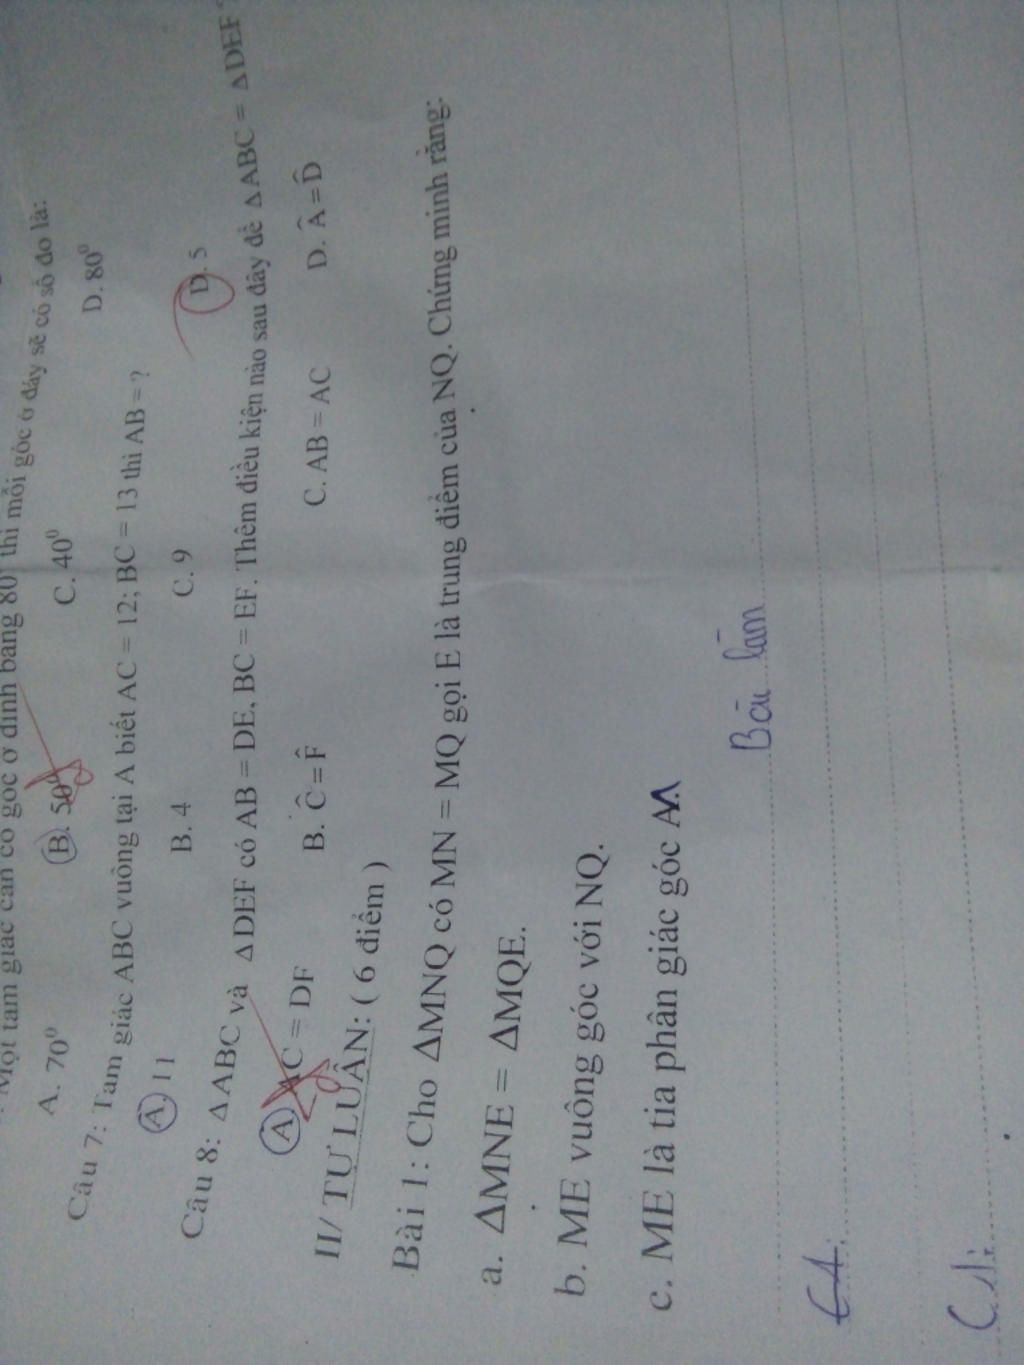 Một tam giác cân có góc ở đỉnh bằng 80⁰ thì mỗi góc ở đáy sẽ có số đo là:
A. 70⁰ B. 50⁰ C. 40⁰ D. 80⁰
Câu 7: Tam giác ABC vuông tại A biết AC = 12; BC = 13 thì AB = ?
A. 11 B. 4 C. 9 D. 5
Câu 8: ΔABC và ΔDEF có AB = DE, BC = EF. Thêm điều kiện nào sau đây để ΔABC = ΔDEF
A. AC = DF B. Ĉ = F̂ C. AB = AC D. Â = D̂
II/ TỰ LUẬN: ( 6 điểm )
Bài 1: Cho ΔMNQ có MN = MQ gọi E là trung điểm của NQ. Chứng minh rằng:
a. ΔMNE = ΔMQE.
b. ME vuông góc với NQ.
c. ME là tia phân giác góc
Bài làm